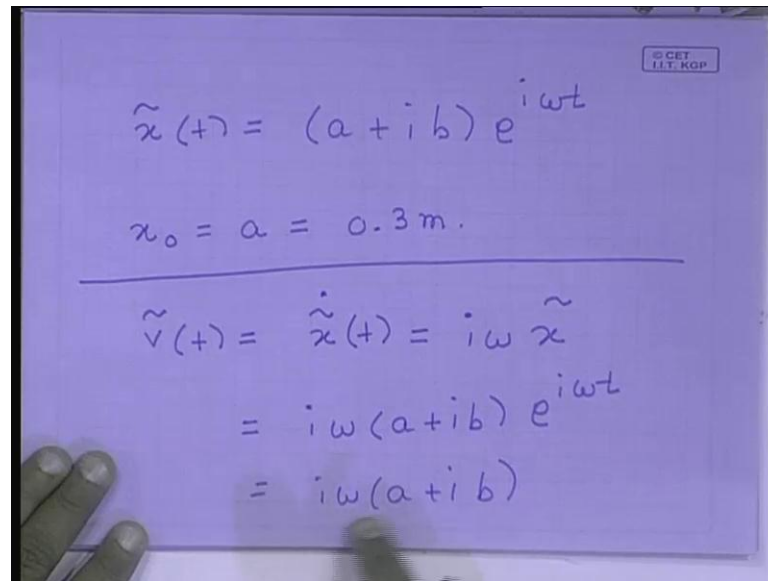 © CET
I.I.T. KGP
x̃(t) = (a + i b) e^{iωt}
x₀ = a = 0.3 m.
ṽ(t) = x̃̇(t) = i ω x̃
= i ω (a + i b) e^{iωt}
= i ω (a + i b)